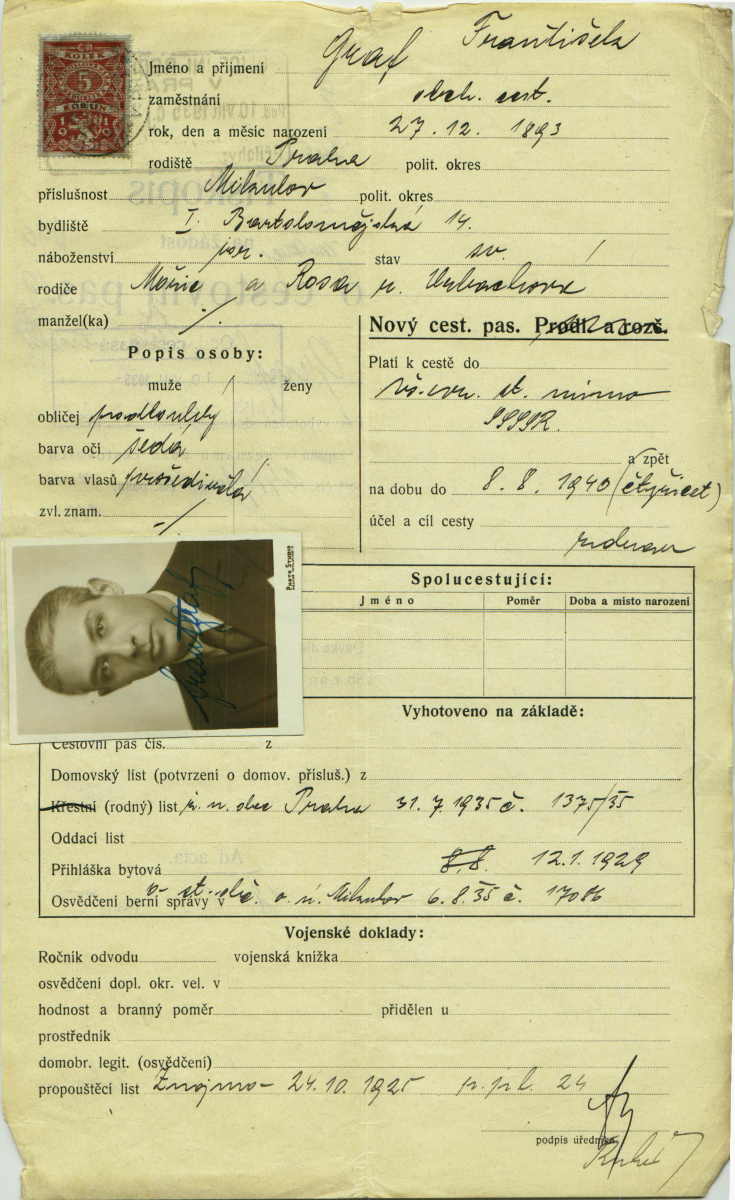 Jméno a přijmení Graf František
zaměstnání obch. cest.
rok, den a měsíc narození 27. 12. 1893
rodiště Praha polit. okres
příslušnost Mikulov polit. okres
bydliště I. Bartolomějská 14.
náboženství isr. stav sv.
rodiče Mořic a Rosa r.
manžel(ka) ./.
Popis osoby:
muže ženy
obličej podlouhlý
barva očí šedá
barva vlasů prošedivělá
zvl. znam. -/
Nový cest. pas. Prodl. a rozš.
Platí k cestě do
vš. evr. st. mimo
SSSR.
a zpět
na dobu do 8. 8. 1940 (čtyřicet)
účel a cíl cesty
PHOTO STUDIO
Spolucestující:
Jméno Poměr Doba a místo narození
Vyhotoveno na základě:
Cestovní pas čís. z
Domovský list (potvrzení o domov. přísluš.) z
Křestní (rodný) list ž. n. obec Praha 31. 7. 1935 č. 1375/35
Oddací list
Přihláška bytová 8.8. 12. 1. 1929
Osvědčení berní správy v o st. obč. o. ú. Mikulov 6. 8. 35 č. 17086
Vojenské doklady:
Ročník odvodu vojenská knížka
osvědčení dopl. okr. vel. v
hodnost a branný poměr přidělen u
prostředník
domobr. legit. (osvědčení)
propouštěcí list Znojmo - 24. 10. 1925 p. pl. 24
podpis úředníka